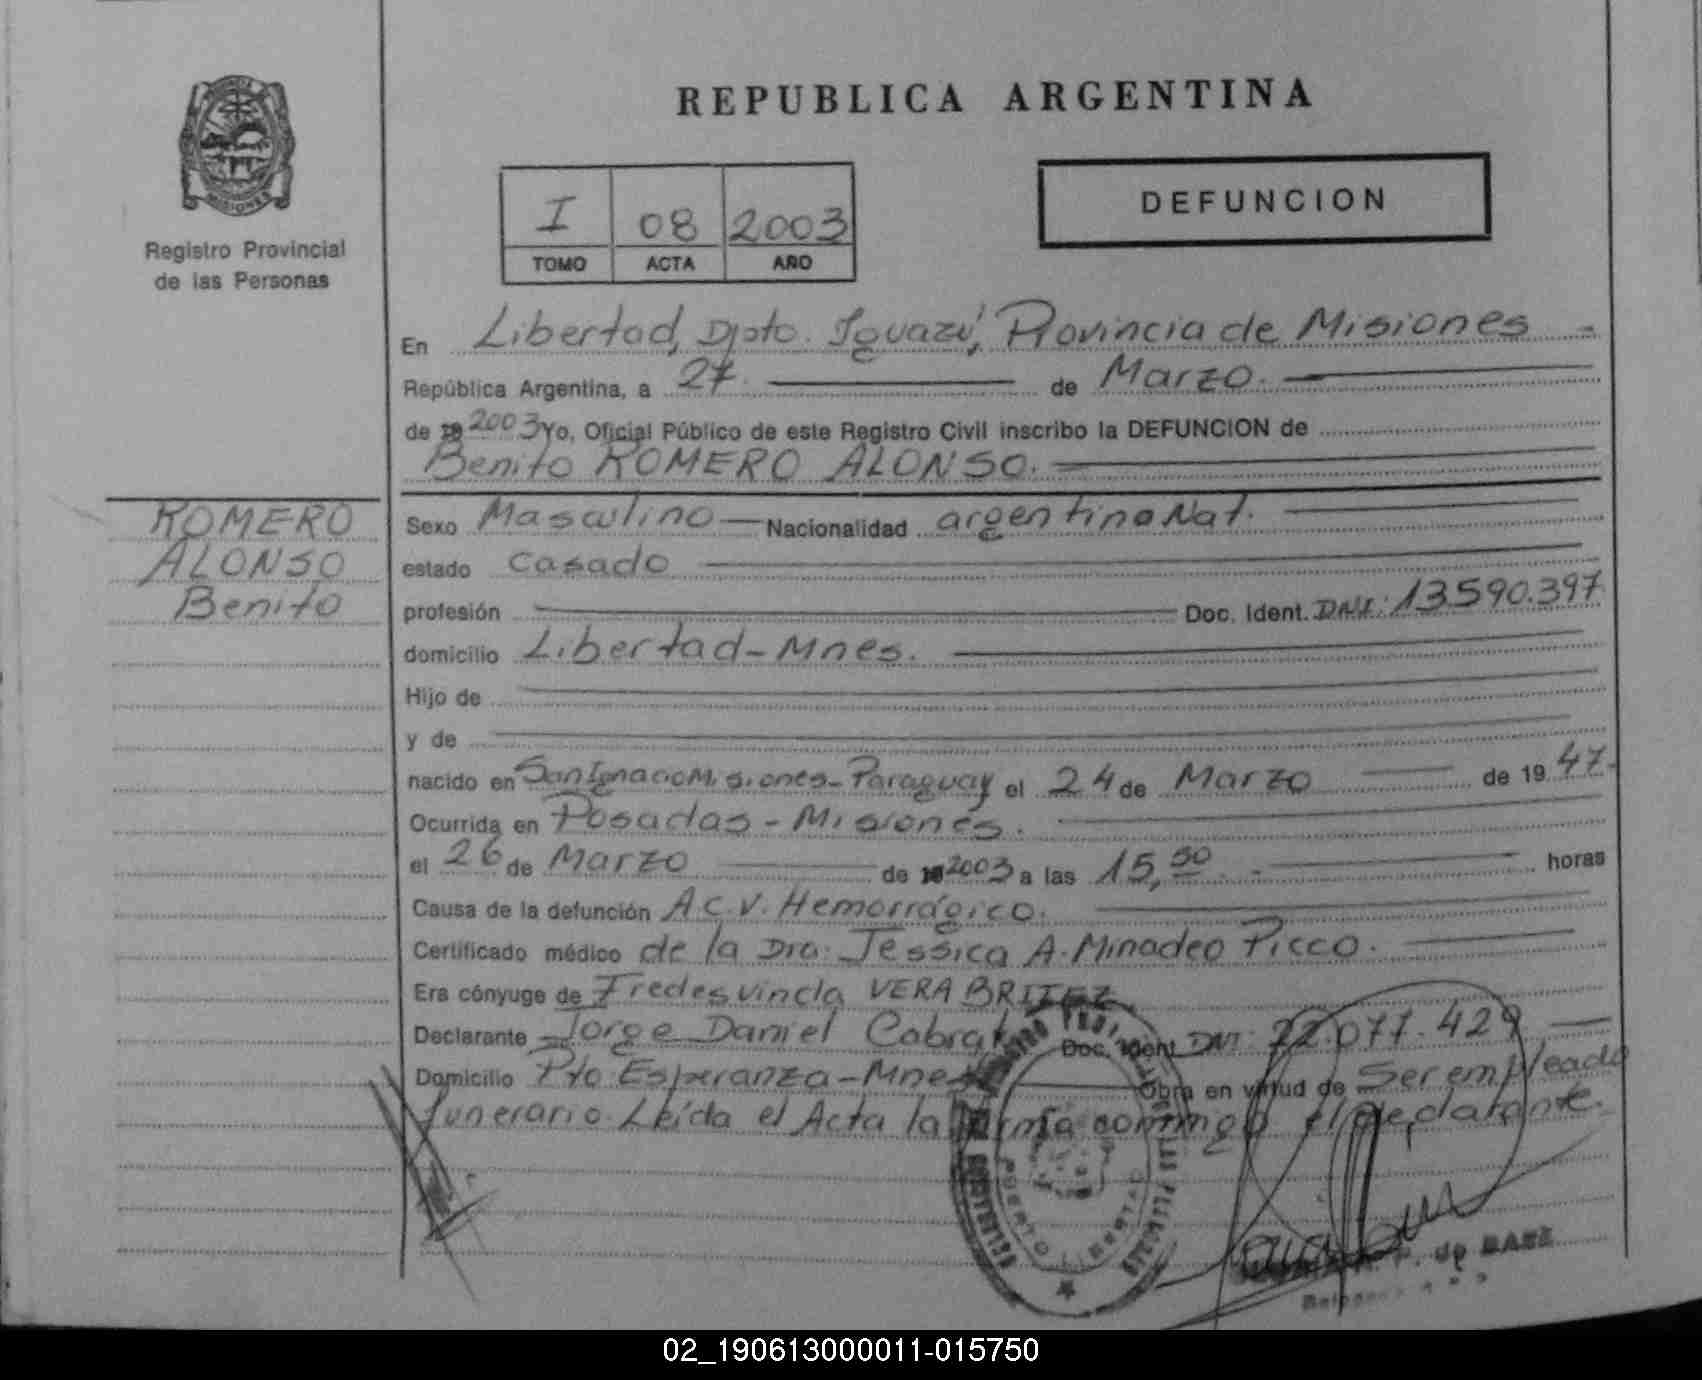 REPUBLICA ARGENTINA
MISIONES
Registro Provincial
de las Personas
I 08 2003
TOMO ACTA AÑO
DEFUNCION
En Libertad, Dpto. Iguazú, Provincia de Misiones
República Argentina, a 27 de Marzo.
de 2003 Yo, Oficial Público de este Registro Civil inscribo la DEFUNCION de
Benito ROMERO ALONSO.
ROMERO
ALONSO
Benito
Sexo Masculino Nacionalidad argentino Nat.
estado Casado
profesión Doc. Ident. DNI: 13.590.397
domicilio Libertad-Mnes.
Hijo de
y de
nacido en San Ignacio Misiones-Paraguay el 24 de Marzo de 1947.
Ocurrida en Posadas-Misiones.
el 26 de Marzo de 2003 a las 15, horas
Causa de la defunción A.C.V. Hemorrágico.
Certificado médico de la Dra: Jessica A. Minadeo Picco.
Era cónyuge de Fredesvinda VERA BRITEZ
Declarante Jorge Daniel Cabral Doc. Ident. DNI: 22.077.429
Domicilio Pto Esperanza-Mnes Obra en virtud de Ser empleado
funerario. Leída el Acta la firma conmigo el declarante.
PUERTO LIBERTAD
de BASE
02_190613000011-015750